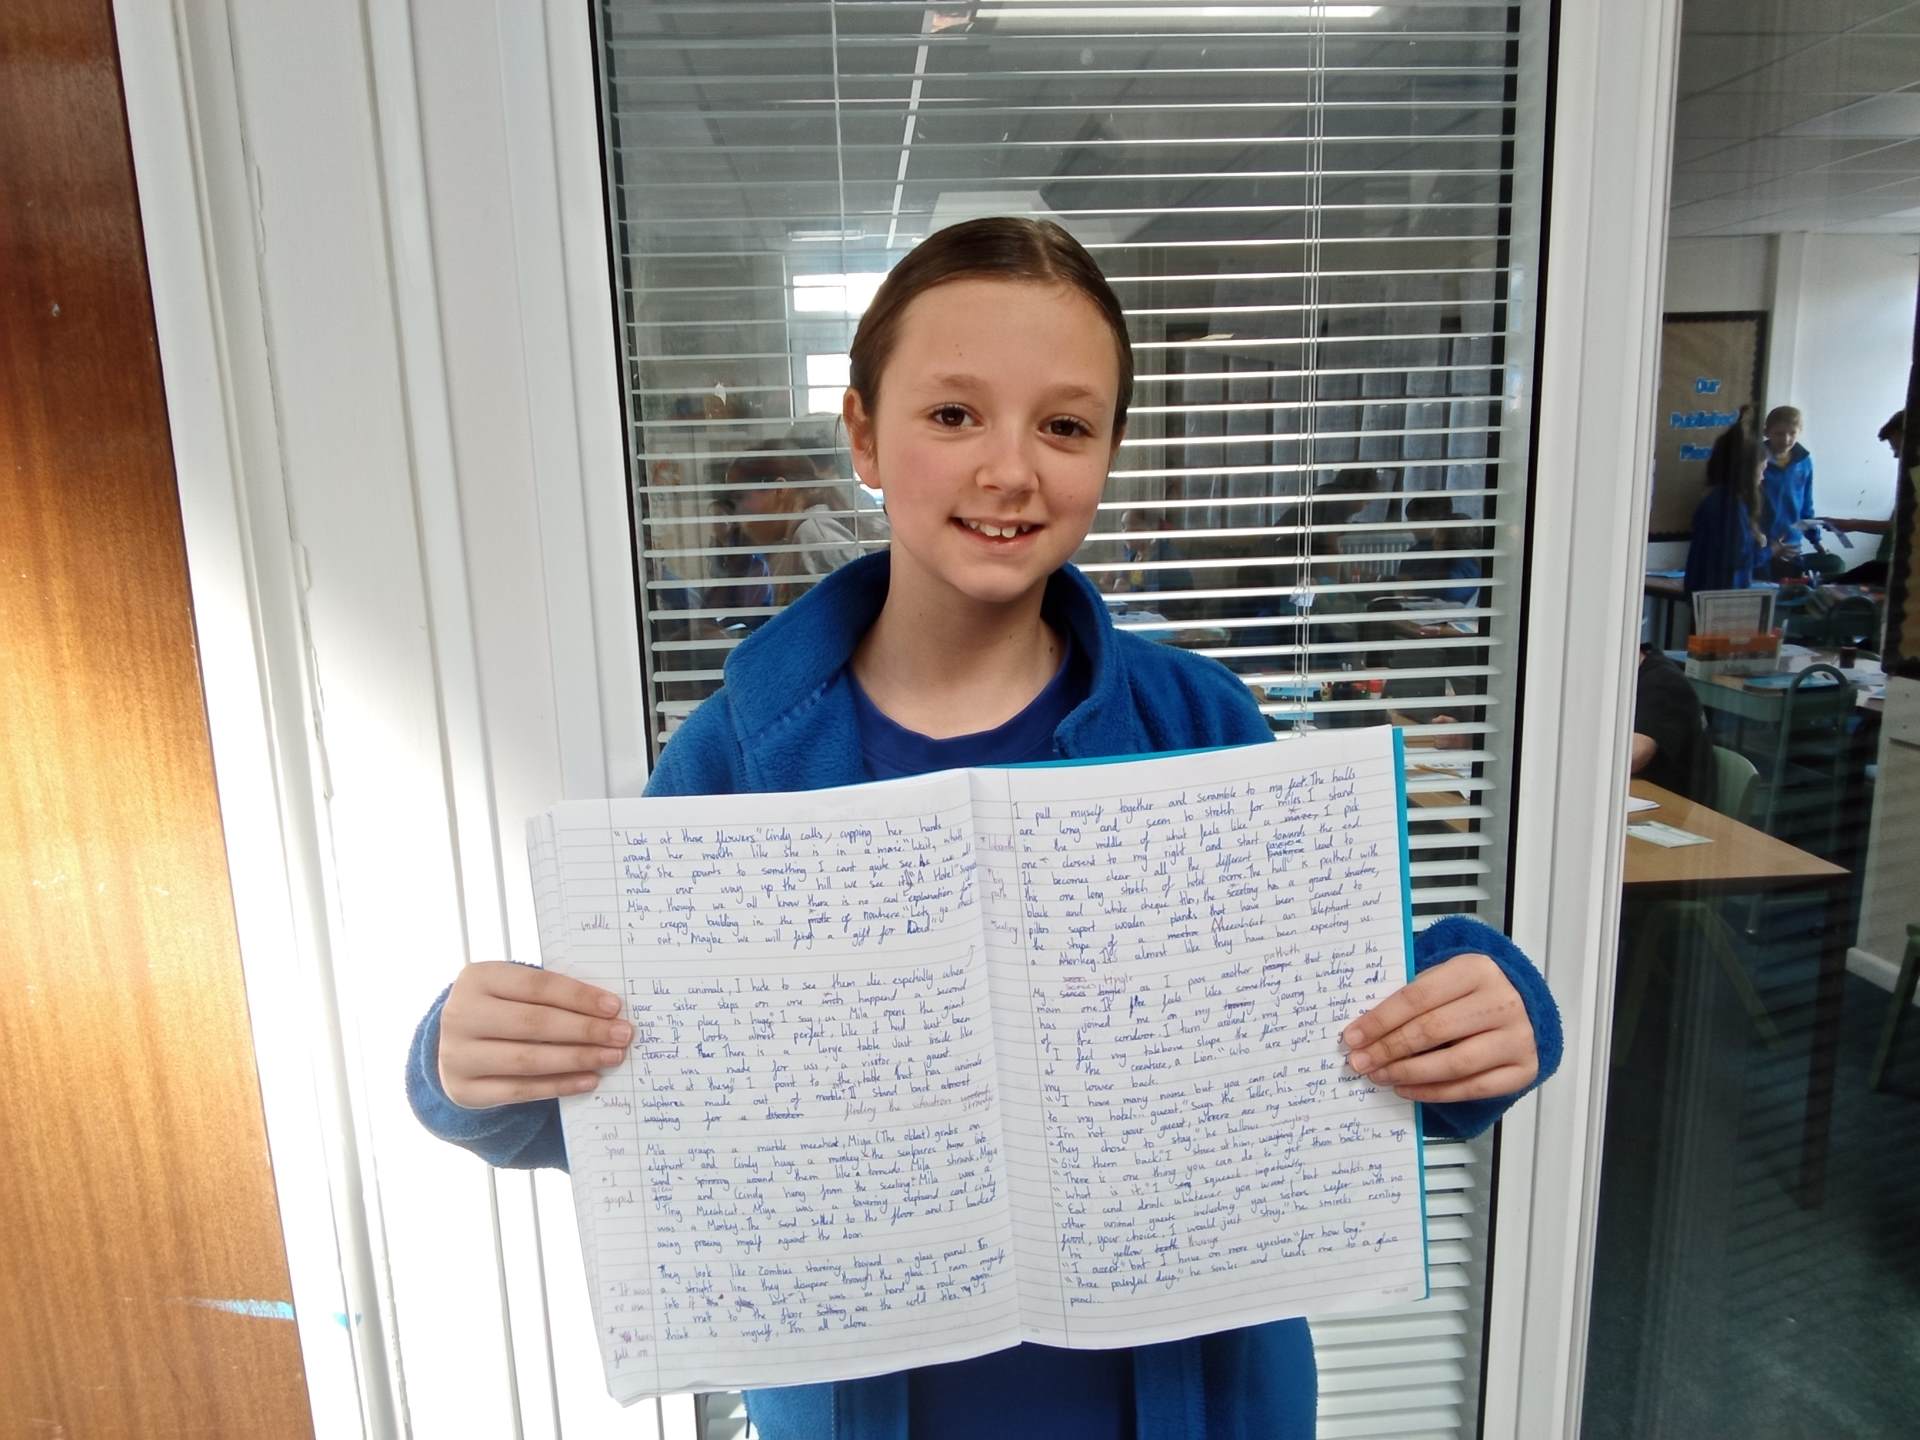 "Look at those flowers." Cindy calls, cupping her hands
around her mouth like she is in a movie. "Wait, what's
that," she points to something I cant quite see. As we all
make our way up the hill we see it, "A Hotel"
Miya, though we all know there is no real explanation for
a creepy building in the of nowhere. "Lets go check
it out, Maybe we will fetch a gift for Dad."
middle
I like animals, I hate to see them die. especially when
your sister steps on one wich happend a second
ago. "This place is huge" I say, as Mila opens the giant
door. It looks almost perfect, like it had just been
cleaned. There is a large table just inside like
it was made for uss, a visitor, a guest.
"Look at these" I point to the table that has animals
sculptures made out of marble. I stand back almost
waighing for a disaster finding the situation strange
"Suddenly
"and
span
"I
gasped
Mila grasps a marble meerkat, Miya (The oldest) grabs an
elephant and Cindy hugs a monkey the sculptures turn into
sand spinning around them like a tornado. Mila shrank, Miya
grew and Cindy hung from the sceeling. Mila was a
Tiny Meerkat. Miya was a towering elephand and cindy
was a Monkey. The sand setled to the floor and I backed
away presing myself against the door.
They look like Zombies starring toward a glass panel. In
a stright line they disapear through the glass. I ram myself
into it but it was as hard as rock again.
I met to the floor on the cold tiles. I
think to myself, I'm all alone.
"It was
no use
fell on
I pull myself together and scramble to my feet. The halls
are long and seem to stretch for miles. I stand
in the middle of what feels like a maze, I pick
one closest to my right and start towards the end.
It becomes clear all the different lead to
this one long stretch of hotel rooms. The hall is pathed with
black and white cheque tiles, the sceeling has a grand structure,
pillars suport wooden plands that have been curved to
the shape of a an Elephant and
a Monkey. It's almost like they have been expecting us.
My senses tingle as I pass another that joined the
main one. It feels like something is watching and
has joined me on my journy to the end
of the coridoor. I turn around, my spine tingles as
I feel my talebone slape the floor and look
at the creature, a Lion. "who are you!" I
my lower back.
"I have many names but you can call me the
to my hotel... guest." Says the Teller, his eyes
"I'm not your guest, Wherere are my sisters." I argue
"They chose to stay." he bellows
"Give them back." I stare at him, waiting for a reply.
"There is one thing you can do to get them back." he says
"What is it." I squeak impatiantly.
"Eat and drink whatever you want, but whatch my
other animal guests including you sisters sufer with no
food, your choice, I would just stay." he smirks
his yellow
"I accept." but I have on more question "for how long."
"Three painful days," he smiles and leads me to a glass
panel...
Our
Published